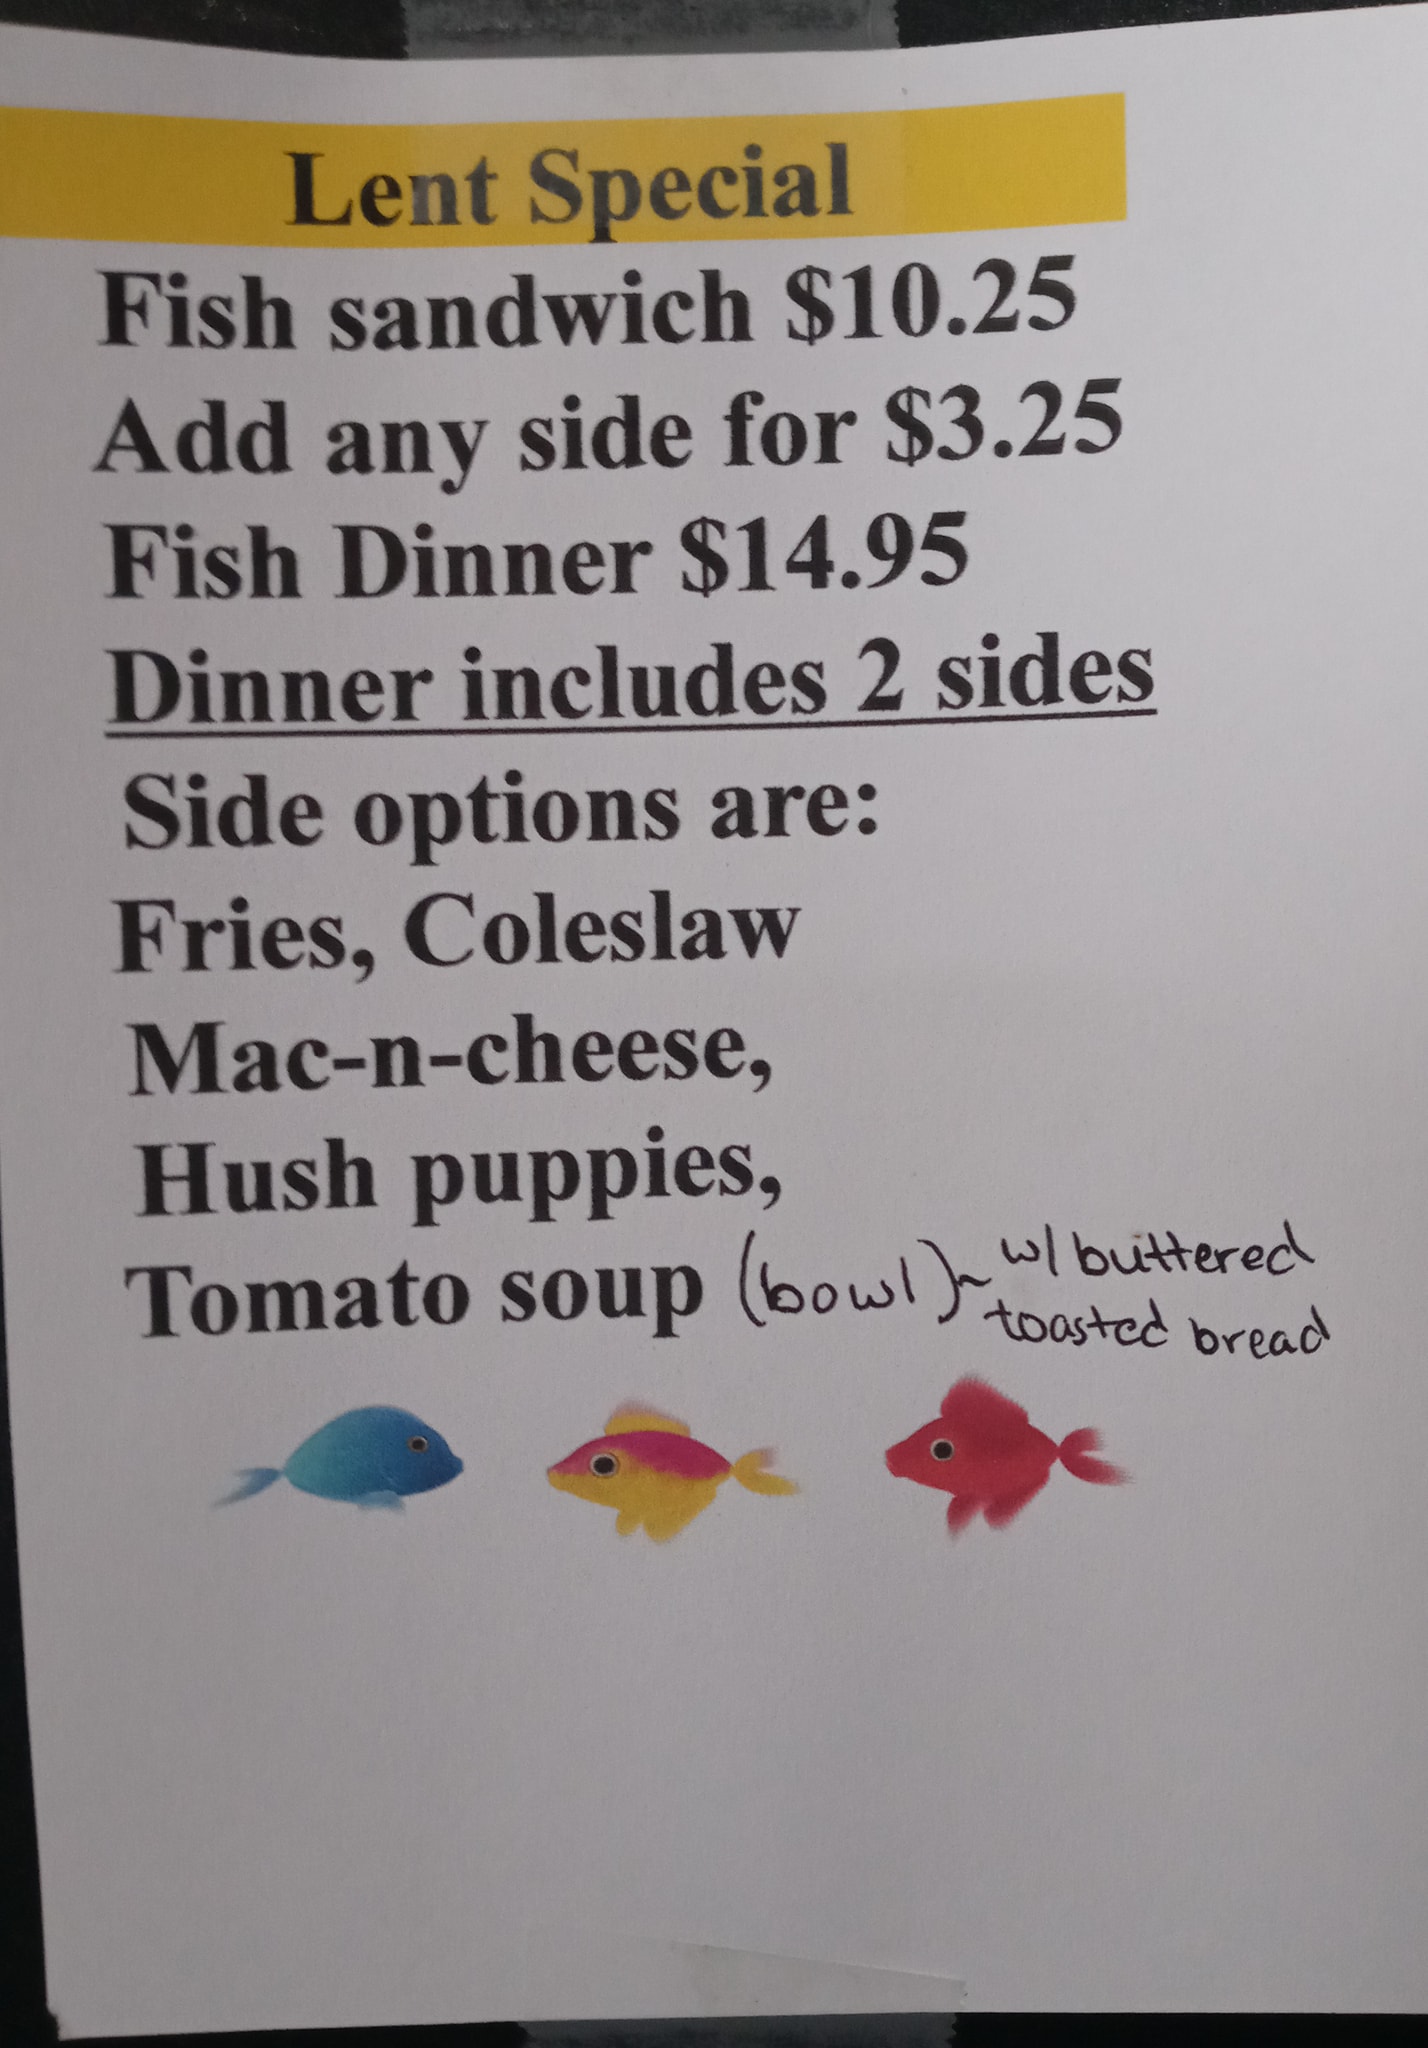 Lent Special
Fish sandwich $10.25
Add any side for $3.25
Fish Dinner $14.95
Dinner includes 2 sides
Side options are:
Fries, Coleslaw
Mac-n-cheese,
Hush puppies,
Tomato soup (bowl)~ w/ buttered
toasted bread